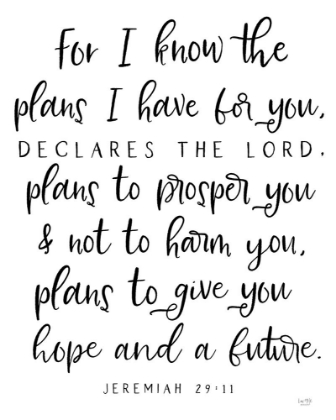 For I know the
plans I have for you,
DECLARES THE LORD,
plans to prosper you
& not to harm you,
plans to give you
hope and a future.
JEREMIAH 29:11